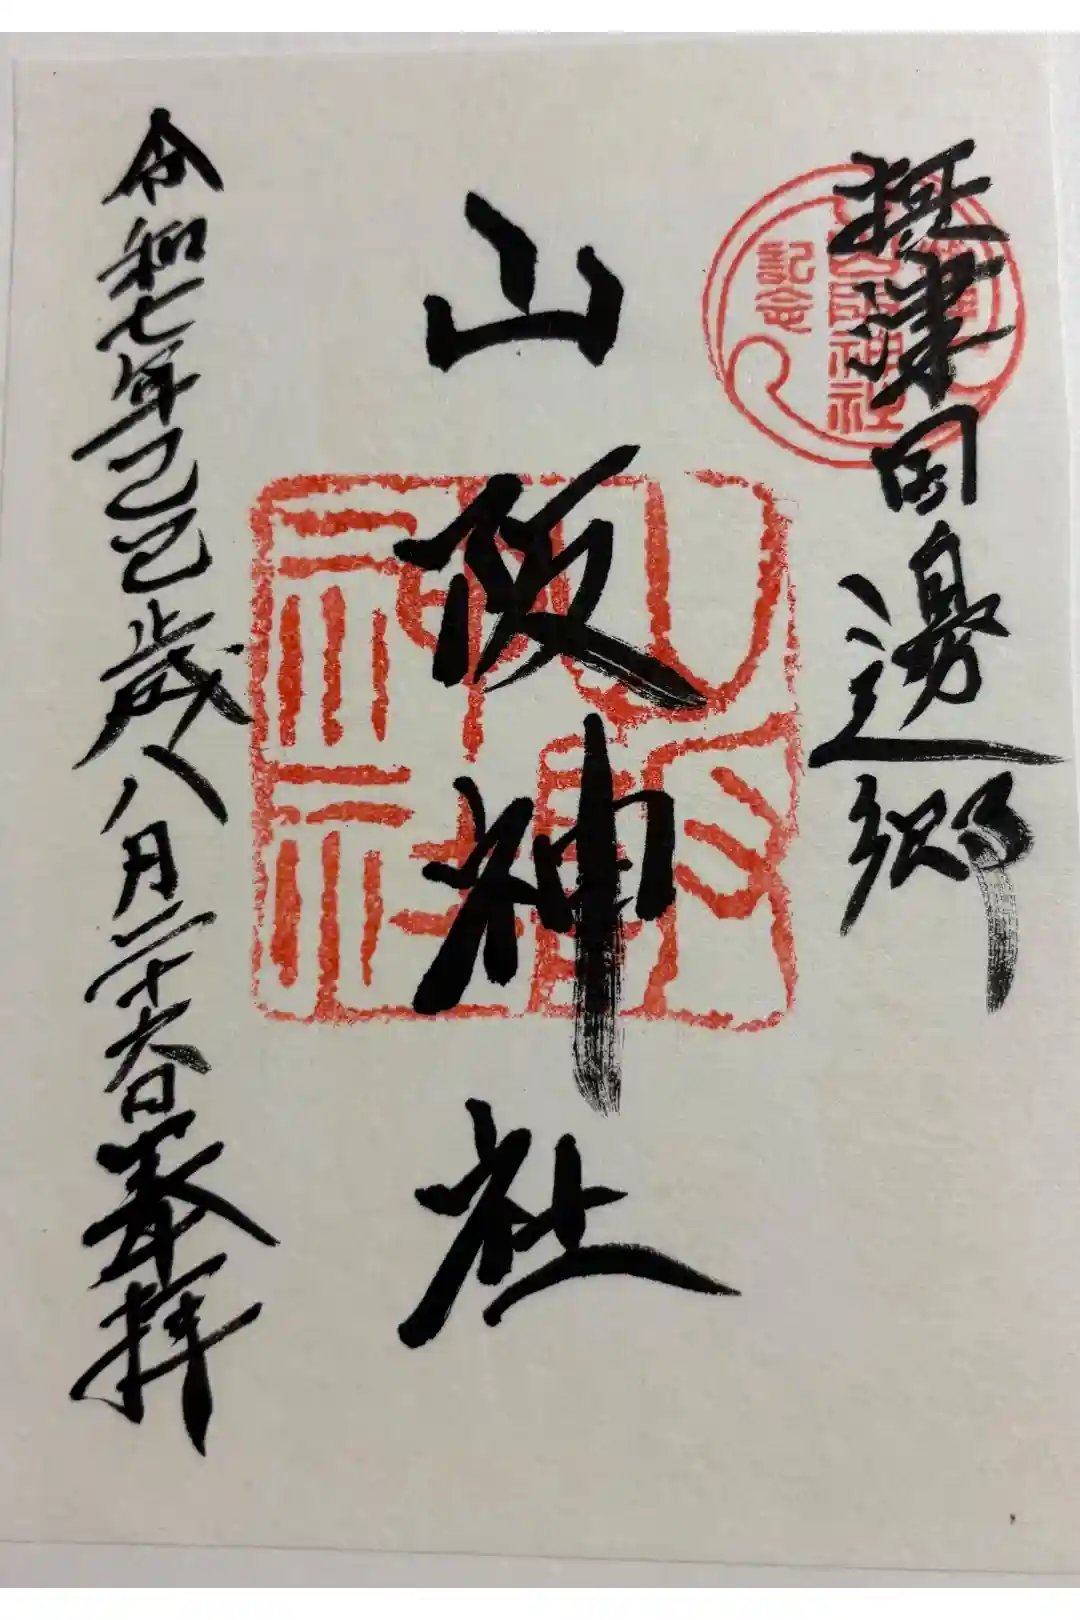 摂津国田邊郷
山阪神社
記念
山阪神社
令和七年己巳歳八月二十六日奉拝